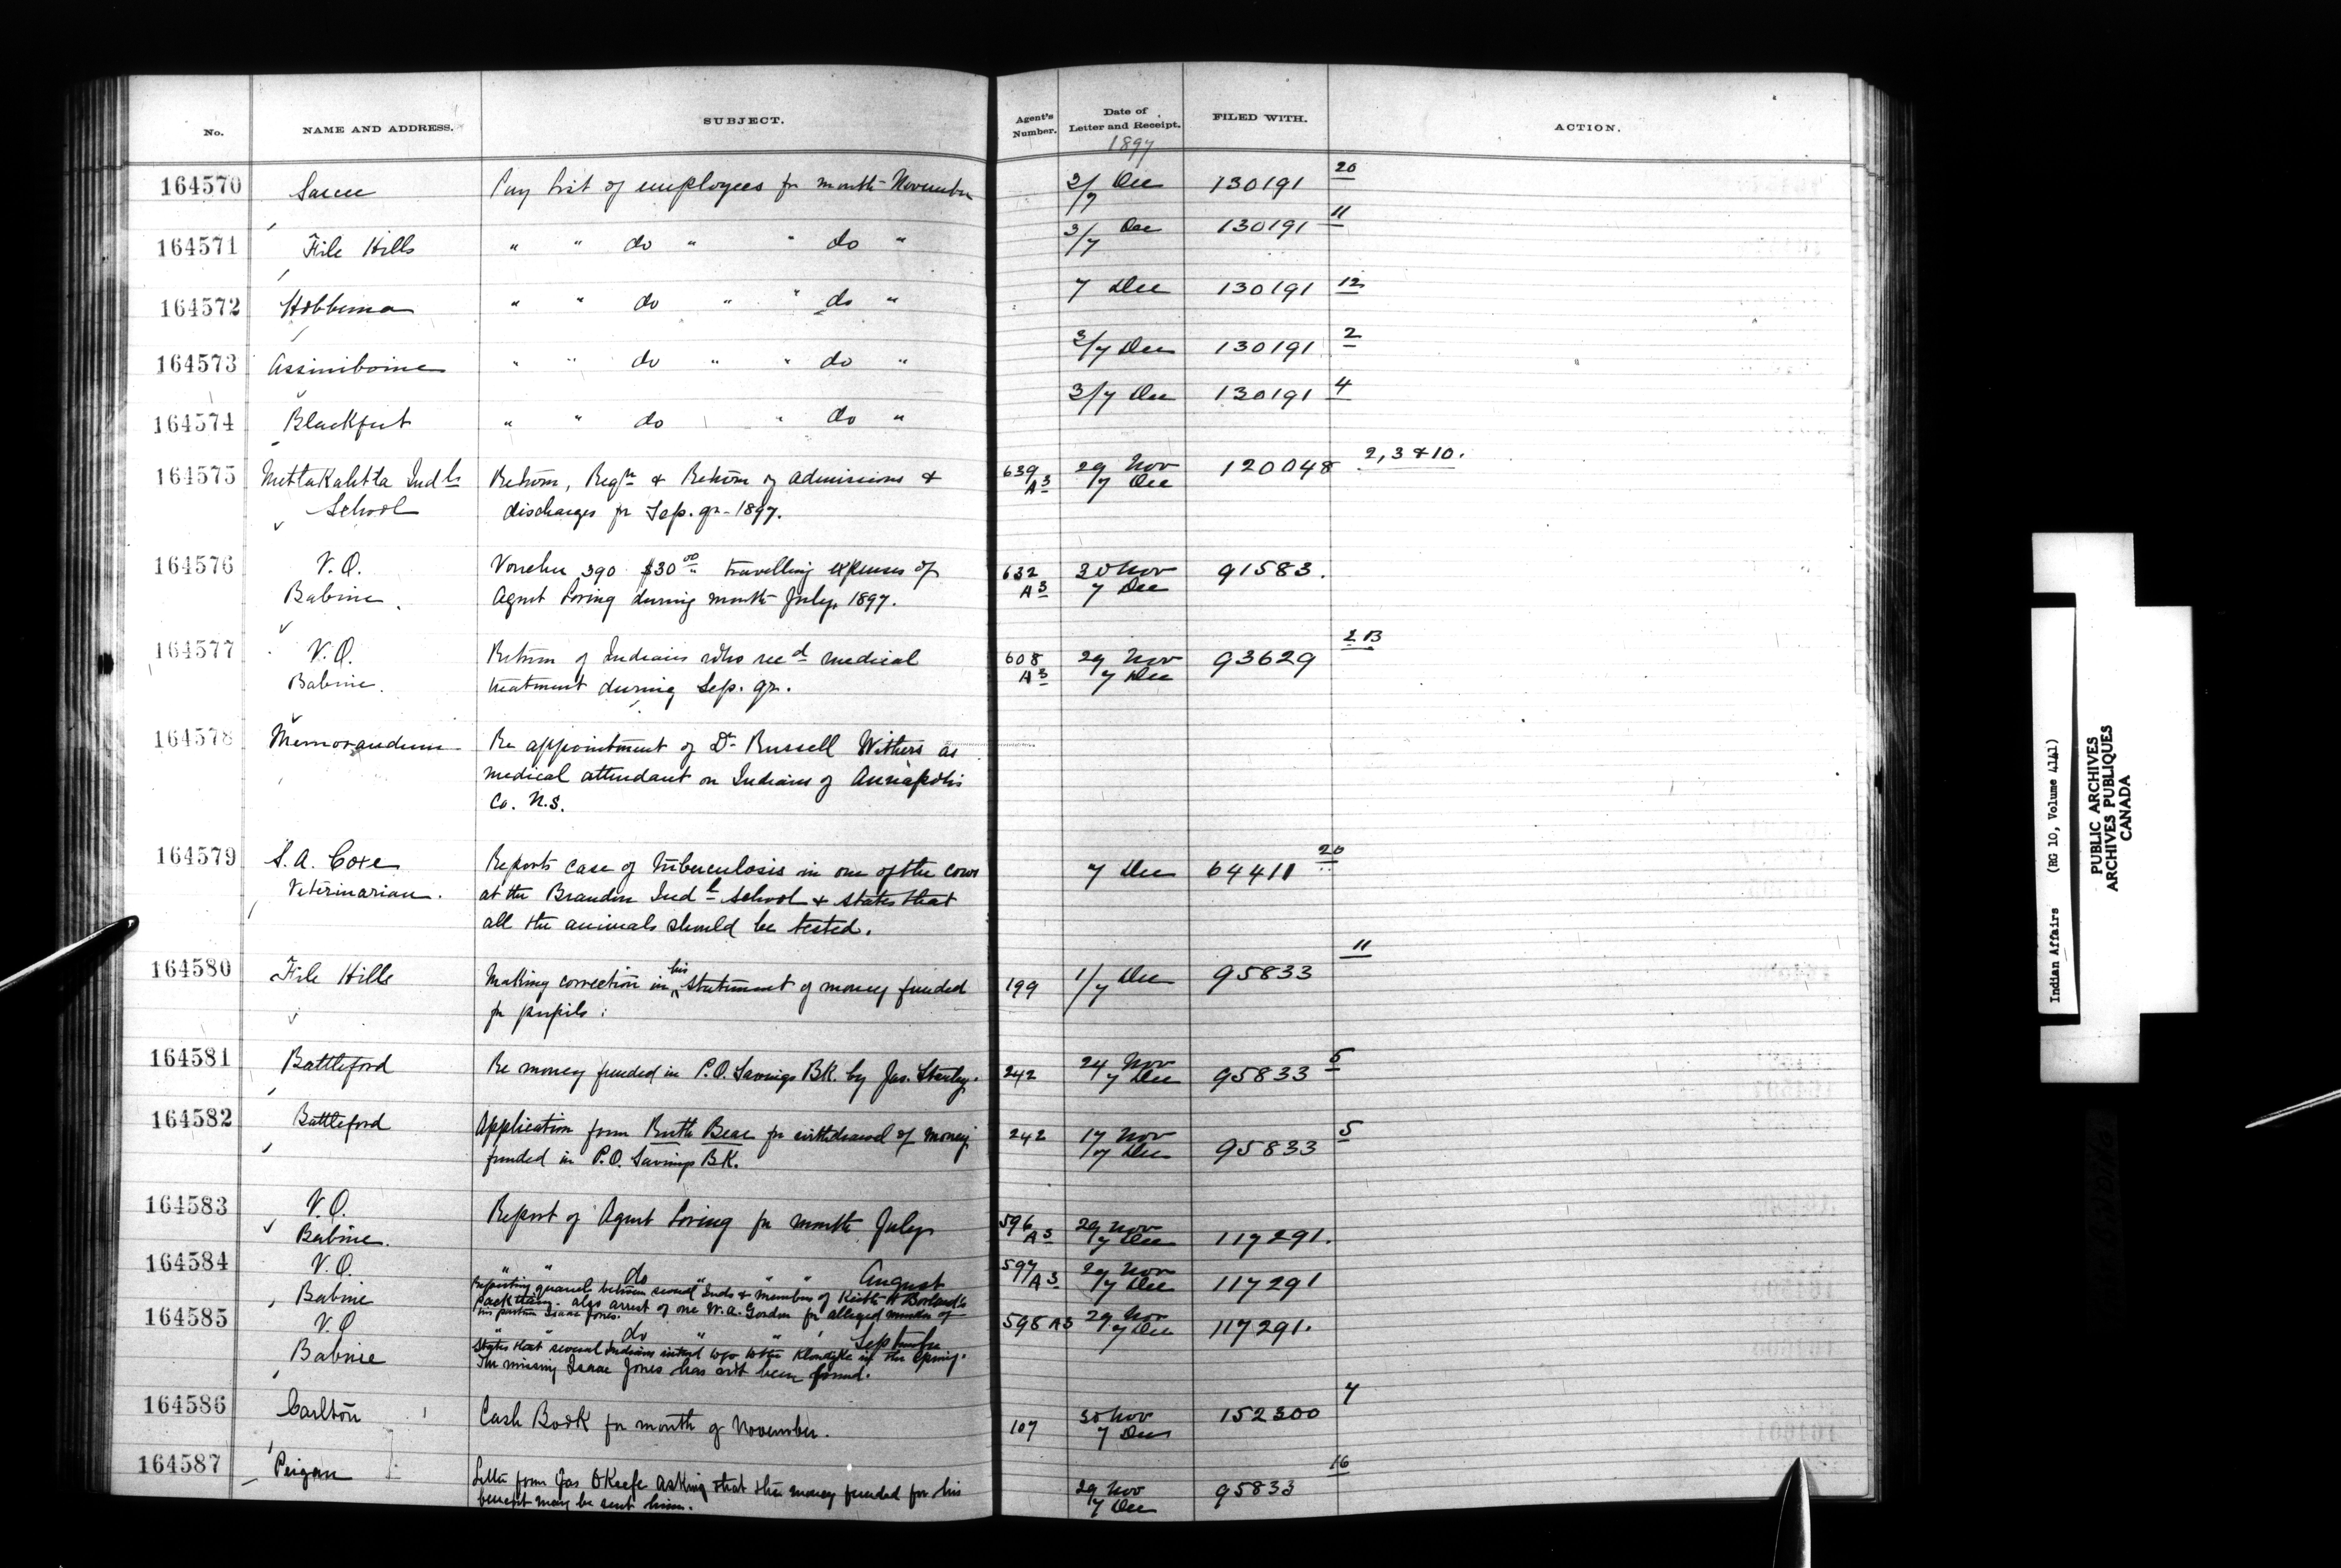 No. NAME AND ADDRESS. SUBJECT. Agent's Number. Date of Letter and Receipt. FILED WITH. ACTION.
1897
164570 Sarcee Pay List of employees for month November 3/7 Dec 130191 20
164571 File Hills " " do " " do " 3/7 Dec 130191 11
164572 Hobbema " " do " " do " 7 Dec 130191 12
164573 Assiniboine " " do " " do " 3/7 Dec 130191 2
164574 Blackfeet " " do " do " 3/7 Dec 130191 4
164575 Metlakahtla Indl Return, Regr & Return of admissions & 639 29 Nov 120048 2, 3 & 10.
School discharges for Sep. qr. 1897. A3 7 Dec
164576 V.O. Voucher 390 $30 00 travelling expenses of 632 30 Nov 91583.
Babine. Agent Loring during month July, 1897. A3 7 Dec
164577 V.O. Return of Indians who recd medical 608 29 Nov 93629 2 B
Babine. treatment during Sep. qr. A3 7 Dec
164578 Memorandum Re appointment of Dr Russell Withers as
medical attendant on Indians of Annapolis
Co. N.S.
164579 S.A. Coxe Reports case of tuberculosis in one of the cows 7 Dec 64411 20
Veterinarian. at the Brandon Indl School & states that
all the animals should be tested.
164580 File Hills Making correction in his statement of money funded 199 1/7 Dec 95833 11
for pupils.
164581 Battleford Re money funded in P.O. Savings BK. by Jas. 242 24 Nov 95833 5
7 Dec
164582 Battleford Application from Ruth Bear for withdrawal of money 242 17 Nov 95833 5
funded in P.O. Savings BK. 7 Dec
164583 V.O. Report of Agent Loring for month July 596 29 Nov 117291.
Babine. A3 7 Dec
164584 V.O. " " do " " " August 597 29 Nov 117291
Babine Reporting quarrel between several Inds & members of Keith & Borland's A3 7 Dec
pack train. also arrest of one W.A. Gordon for alleged murder of
his partner Isaac Jones.
164585 V.O. " " do " " September 598 A3 29 Nov 117291.
Babine States that several Indians intend to go to the Klondyke in the Spring. 7 Dec
The missing Isaac Jones has not been found.
164586 Carlton Cash Book for month of November. 107 30 Nov 152300 7
7 Dec
164587 Peigan Letter from Jas O'Keefe asking that the money funded for his 29 Nov 95833 16
benefit may be sent him. 7 Dec
Indian Affairs (RG 10, Volume 4141)
PUBLIC ARCHIVES
ARCHIVES PUBLIQUES
CANADA